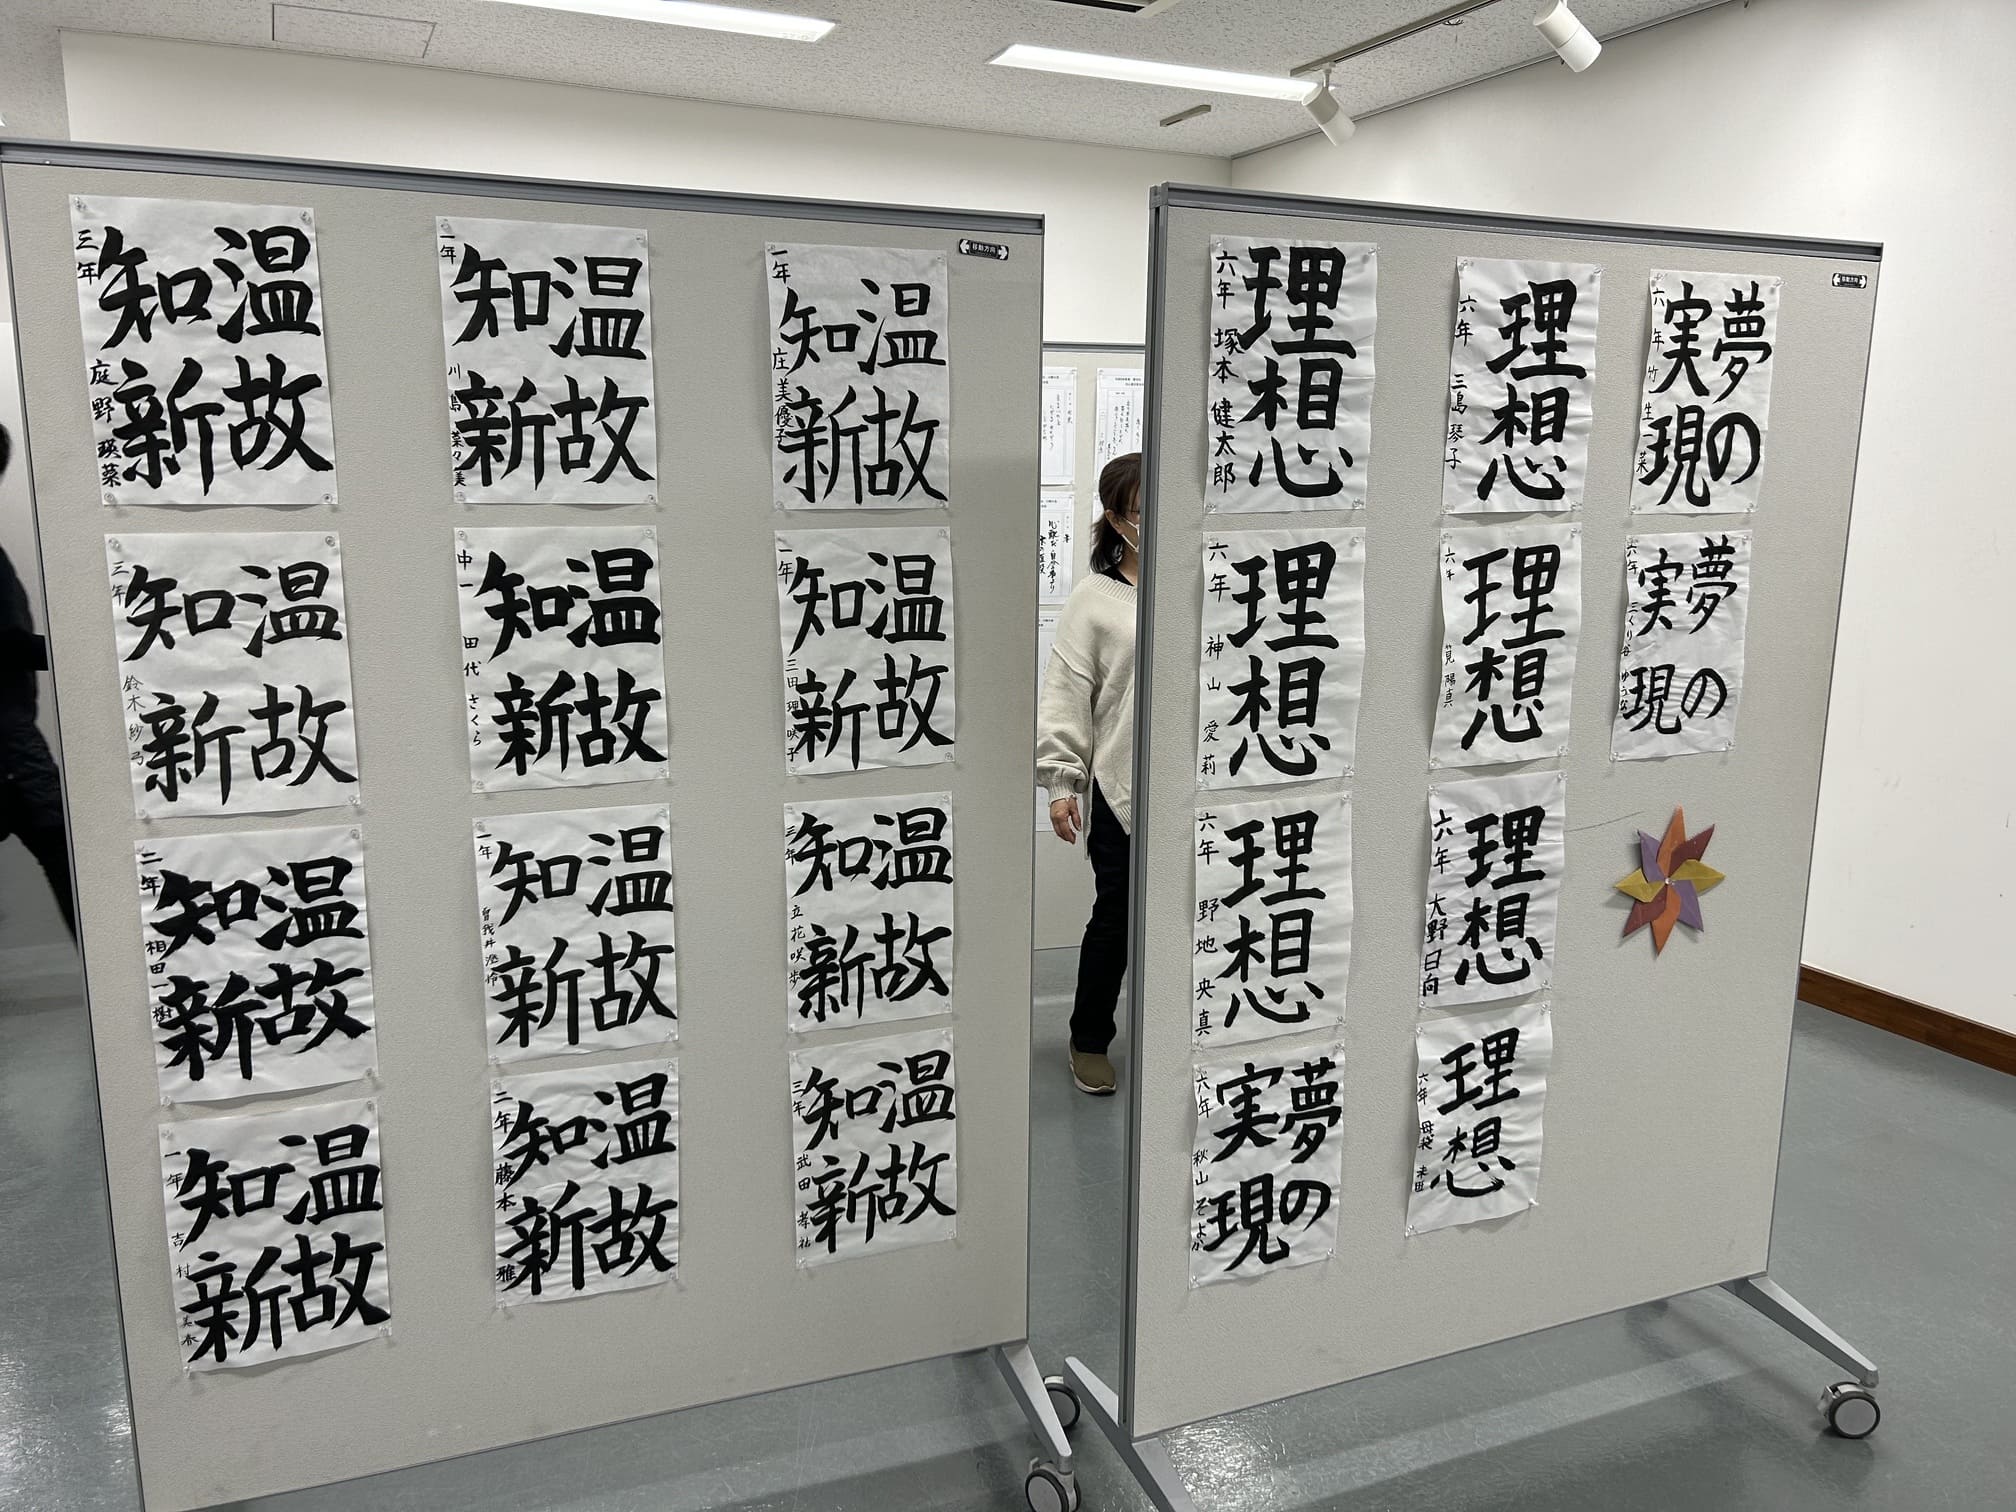 温故
知新
三年 庭野 瑛菜
温故
知新
一年 川島 菜々美
温故
知新
一年 庄 美優子
移動方向
温故
知新
三年 鈴木 紗弓
温故
知新
中一 田代 さくら
温故
知新
一年 三田 理咲子
温故
知新
二年 相田 一樹
温故
知新
一年 曽我井 澄怜
温故
知新
三年 立花 咲歩
温故
知新
一年 吉村 美春
温故
知新
二年 藤本 雅
温故
知新
三年 武田 孝祐
理想
六年 塚本 健太郎
理想
六年 三島 琴子
夢の
実現
六年 竹生 一菜
移動方向
理想
六年 神山 愛莉
理想
六年 筧 陽真
夢の
実現
六年 三くり谷 ゆうな
理想
六年 野地 央真
理想
六年 大野 日向
夢の
実現
六年 秋山 そよか
理想
六年 母袋